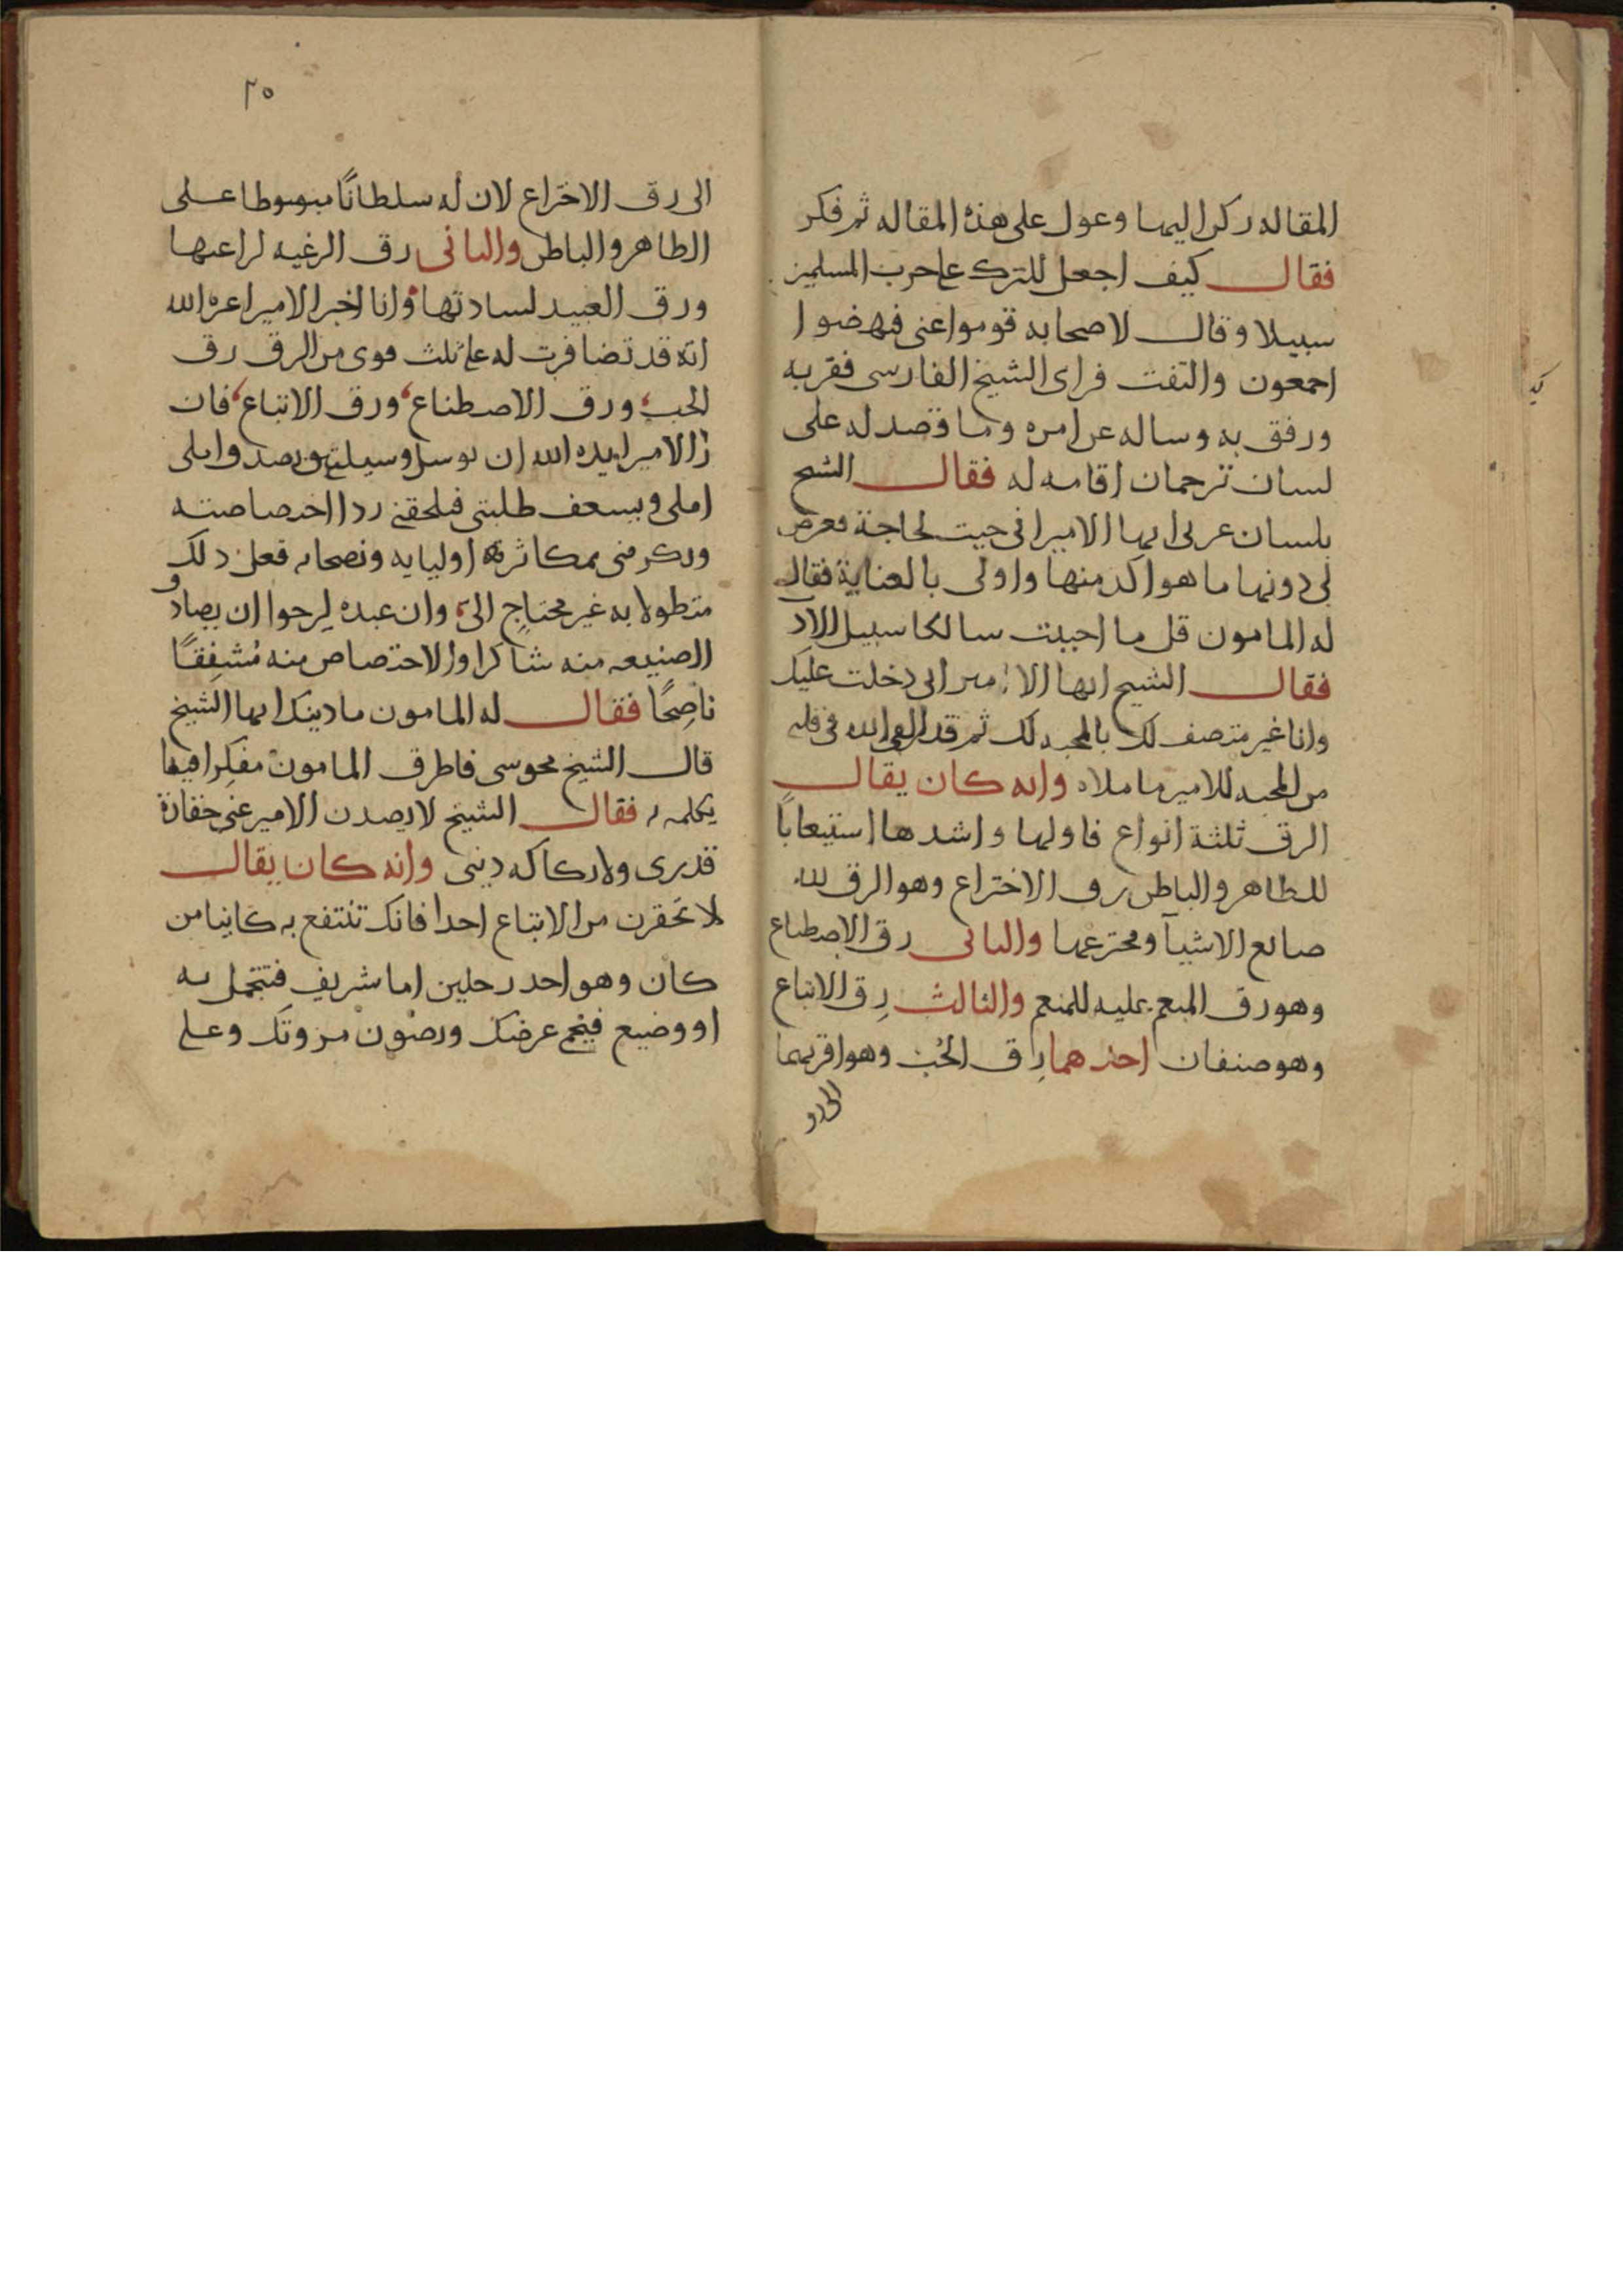 المقاله ركن اليها وعول على هذه المقاله ثم فكر
فقال كيف اجعل للترك على حرب المسلمين
سبيلا وقال لاصحابه قوموا عنى فنهضوا
اجمعون والتفت فراى الشيخ الفارسى فقربه
ورفق به وساله عن امره وما قصد له على
لسان ترجمان اقامه له فقال الشيخ
بلسان عربى ايها الامير انى جيت لحاجة فعرض
لى دونها ما هو اكد منها واولى بالعناية فقال
له المامون قل ما احببت سالكا سبيل الاد
فقال الشيخ ايها الامير انى دخلت عليك
وانا غير متصف لك بالمحبه لك ثم قد القى الله فى قلبى
من المحبه للامير ما ملاه وانه كان يقال
الرق ثلثة انواع فاولها واشدها استيعابًا
للظاهر والباطن رق الاختراع وهو الرق لله
صانع الاشيآ ومخترعها والثانى رق الاصطناع
وهو رق المنعم عليه للمنعم والثالث رِق الاتباع
وهو صنفان احدهما رِق الحُب وهو اقربهما
الى رق
٢٥
الى رق الاختراع لان له سلطانًا مبسوطا على
الظاهر والباطن والثانى رق الرغيه لراعيها
ورق العبيد لسادتها وانا اخبر الامير اعزه الله
انه قد تضافرت له على ثلث قوى من الرق رق
الحب ورق الاصطناع ورق الاتباع فان
را الامير ايده الله ان يوسل وسيلتى ويصدق املى
املى ويسعف طلبتى فيلحقنى ردا اختصاصته
ويكرمنى بمكاثرة اوليايه ونصحايه فعل ذلك
متطولا به غير محتاج الىّ وان عبده ليرجوا ان يصادف
الصنيعه منه شاكرا والاختصاص منه مُشفِقًا
ناصِحًا فقال له المامون ما دينك ايها الشيخ
قال الشيخ مجوسى فاطرق المامون مفكِرا فيما
يكلمه به فقال الشيخ لا يصدن الامير عنى حقارة
قدرى ولا ركاكه دينى وانه كان يقال
لا تحقرن من الاتباع احدا فانك تنتفع به كاينا من
كان وهو احد رجلين اما شريف فتتجمل به
او وضيع فيحمى عرضك ويصون مروتك وعلى